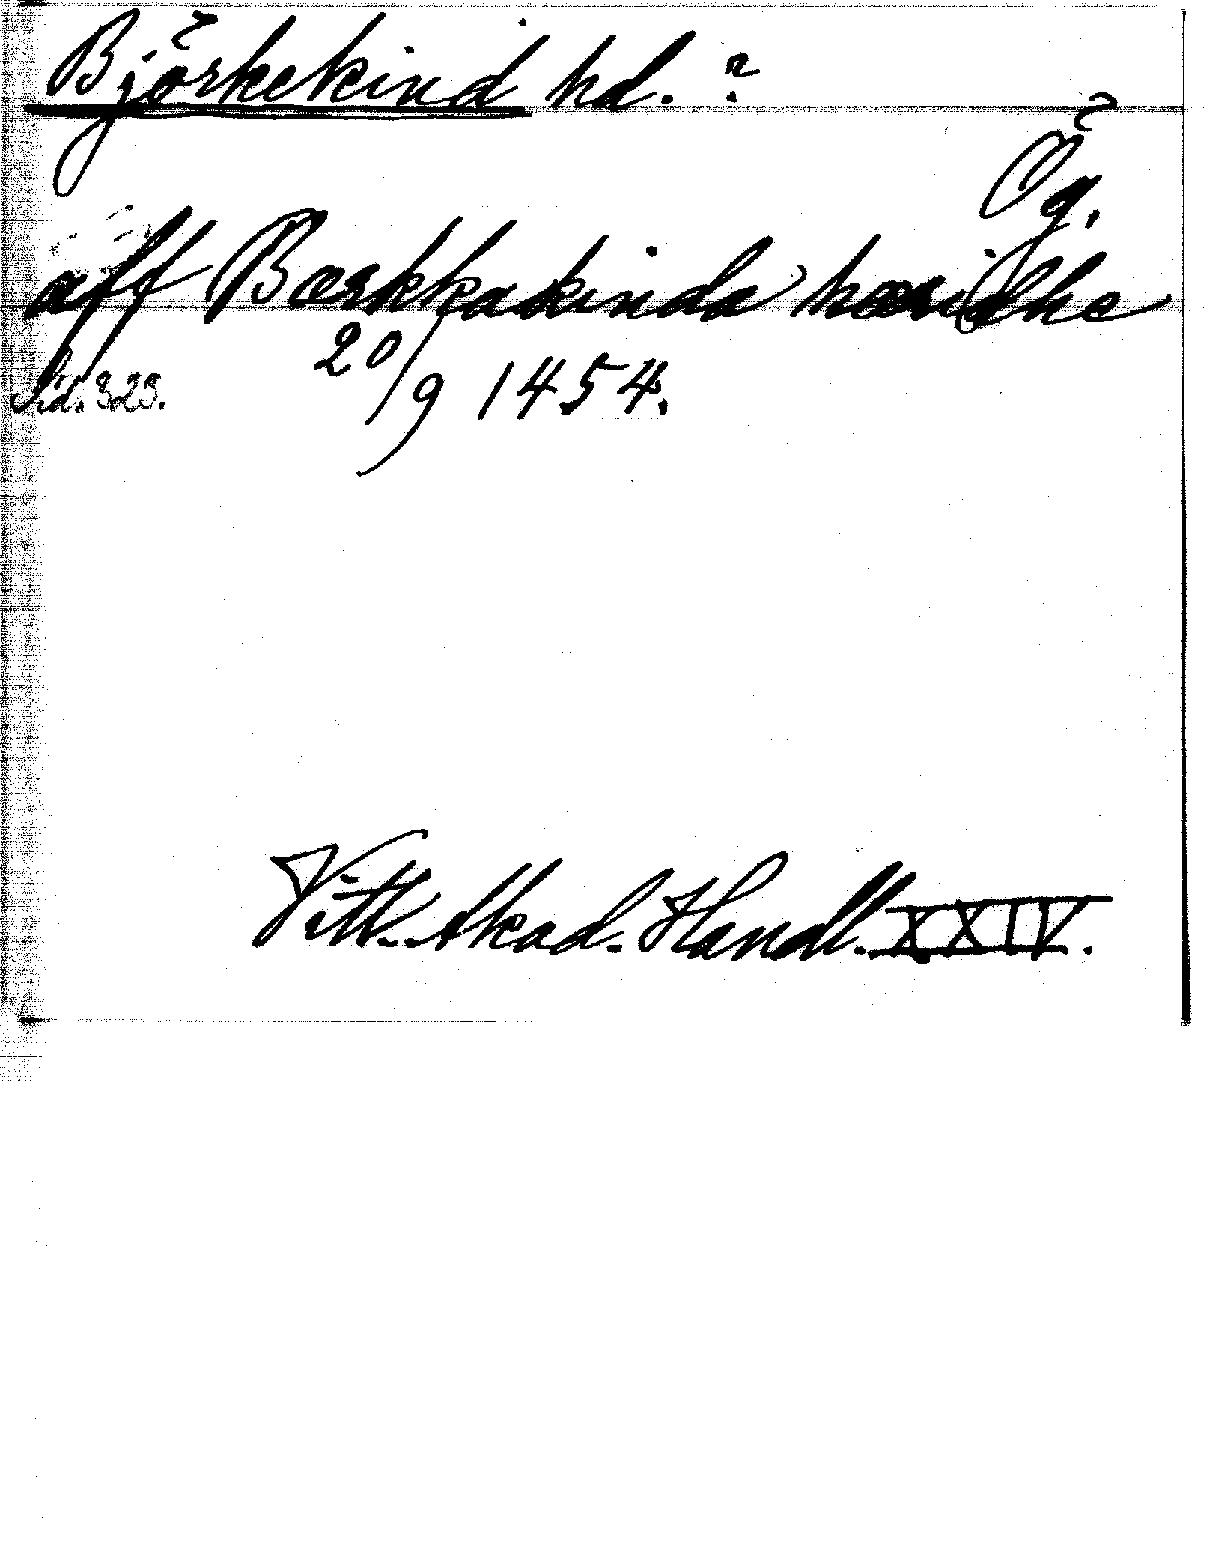 Björkekind hd. ?
Ög.
aff Bærkkakinda hæridhe
Sid. 323. 20/9 1454.
Vitt. Akad. Handl. XXIV.